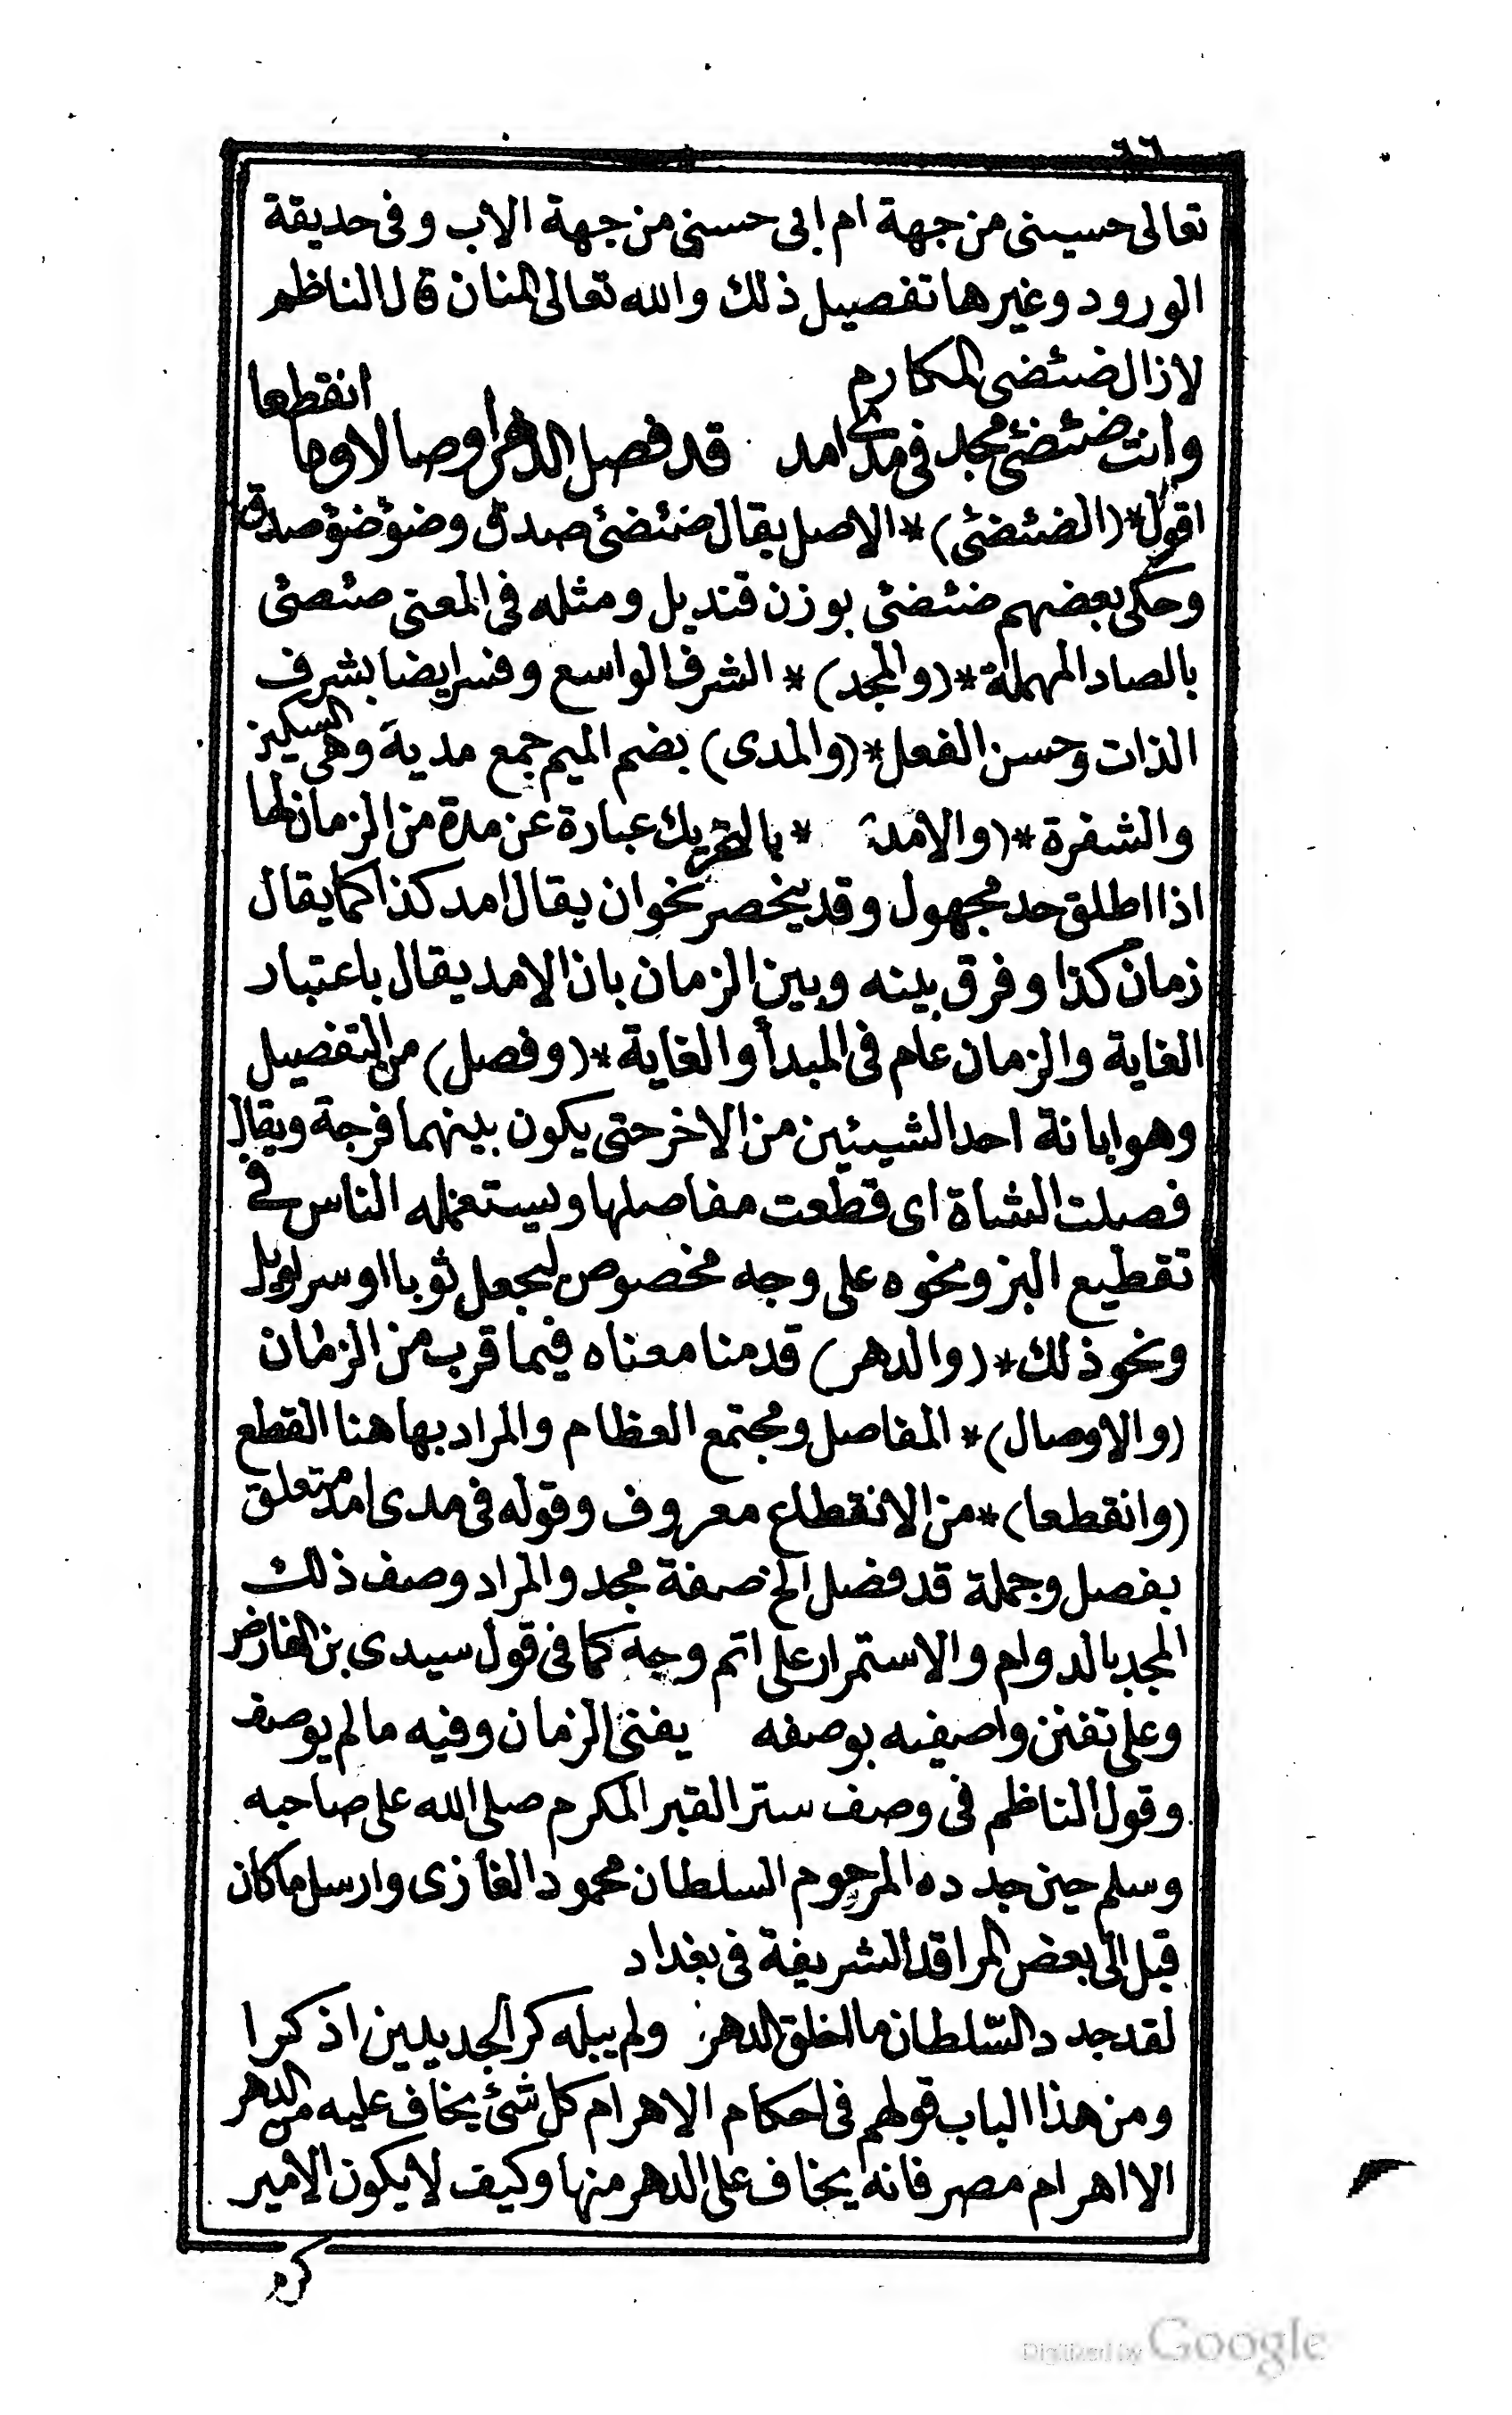 ٦٦
تعالى حسيني من جهة ام ابي حسني من جهة الاب وفي حديقة
الورود وغيرها تفصيل ذلك والله تعالى المنان قال الناظم
لازال ضئضئ المكارم
وانت ضئضئ مجد في مدى امد قد فصل الدهر اوصالا وما انقطعا
اقول * (الضئضئ) * الاصل يقال ضئضئ صدق وضؤضؤ صدق
وحكى بعضهم ضئضئ بوزن قنديل ومثله في المعنى صئصئ
بالصاد المهملة * (والمجد) * الشرف الواسع وفسر ايضا بشرف
الذات وحسن الفعل * (والمدى) بضم الميم جمع مدية وهي السكين
والشفرة * (والامد * بالتحريك عبارة عن مدة من الزمان لها
اذا اطلق حد مجهول وقد ينحصر نحو ان يقال امد كذا كما يقال
زمان كذا وفرق بينه وبين الزمان بان الامد يقال باعتبار
الغاية والزمان عام في المبدأ والغاية * (وفصل) من التفصيل
وهو ابانة احد الشيئين من الاخر حتى يكون بينهما فرجة ويقال
فصلت الشاة اى قطعت مفاصلها ويستعمله الناس في
تقطيع البز ونحوه على وجه مخصوص ليجعل ثوبا او سراويل
ونحو ذلك * (والدهر) قدمنا معناه فيما قرب من الزمان
(والاوصال) * المفاصل ومجتمع العظام والمراد بها هنا القطع
(وانقطعا) * من الانقطاع معروف وقوله في مدى امد متعلق
بفصل وجملة قد فضل الخ صفة مجد والمراد وصف ذلك
المجد بالدوام والاستمرار على اتم وجه كما في قول سيدى بن الفارض
وعلى تفنن واصفيه بوصفه يفنى الزمان وفيه مالم يوصف
وقول الناظم في وصف ستر القبر المكرم صلى الله على صاحبه
وسلم حين جدده المرحوم السلطان محمود الغازى وارسل ماكان
قبل الى بعض المراقد الشريفة في بغداد
لقد جدد السلطان ما اخلق الدهر ولم يبله كر الجديدين اذ كرا
ومن هذا الباب قولهم في احكام الاهرام كل شئ يخاف عليه من الدهر
الا اهرام مصر فانه يخاف على الدهر منها وكيف لا يكون الامير
كرم
Digitized by Google